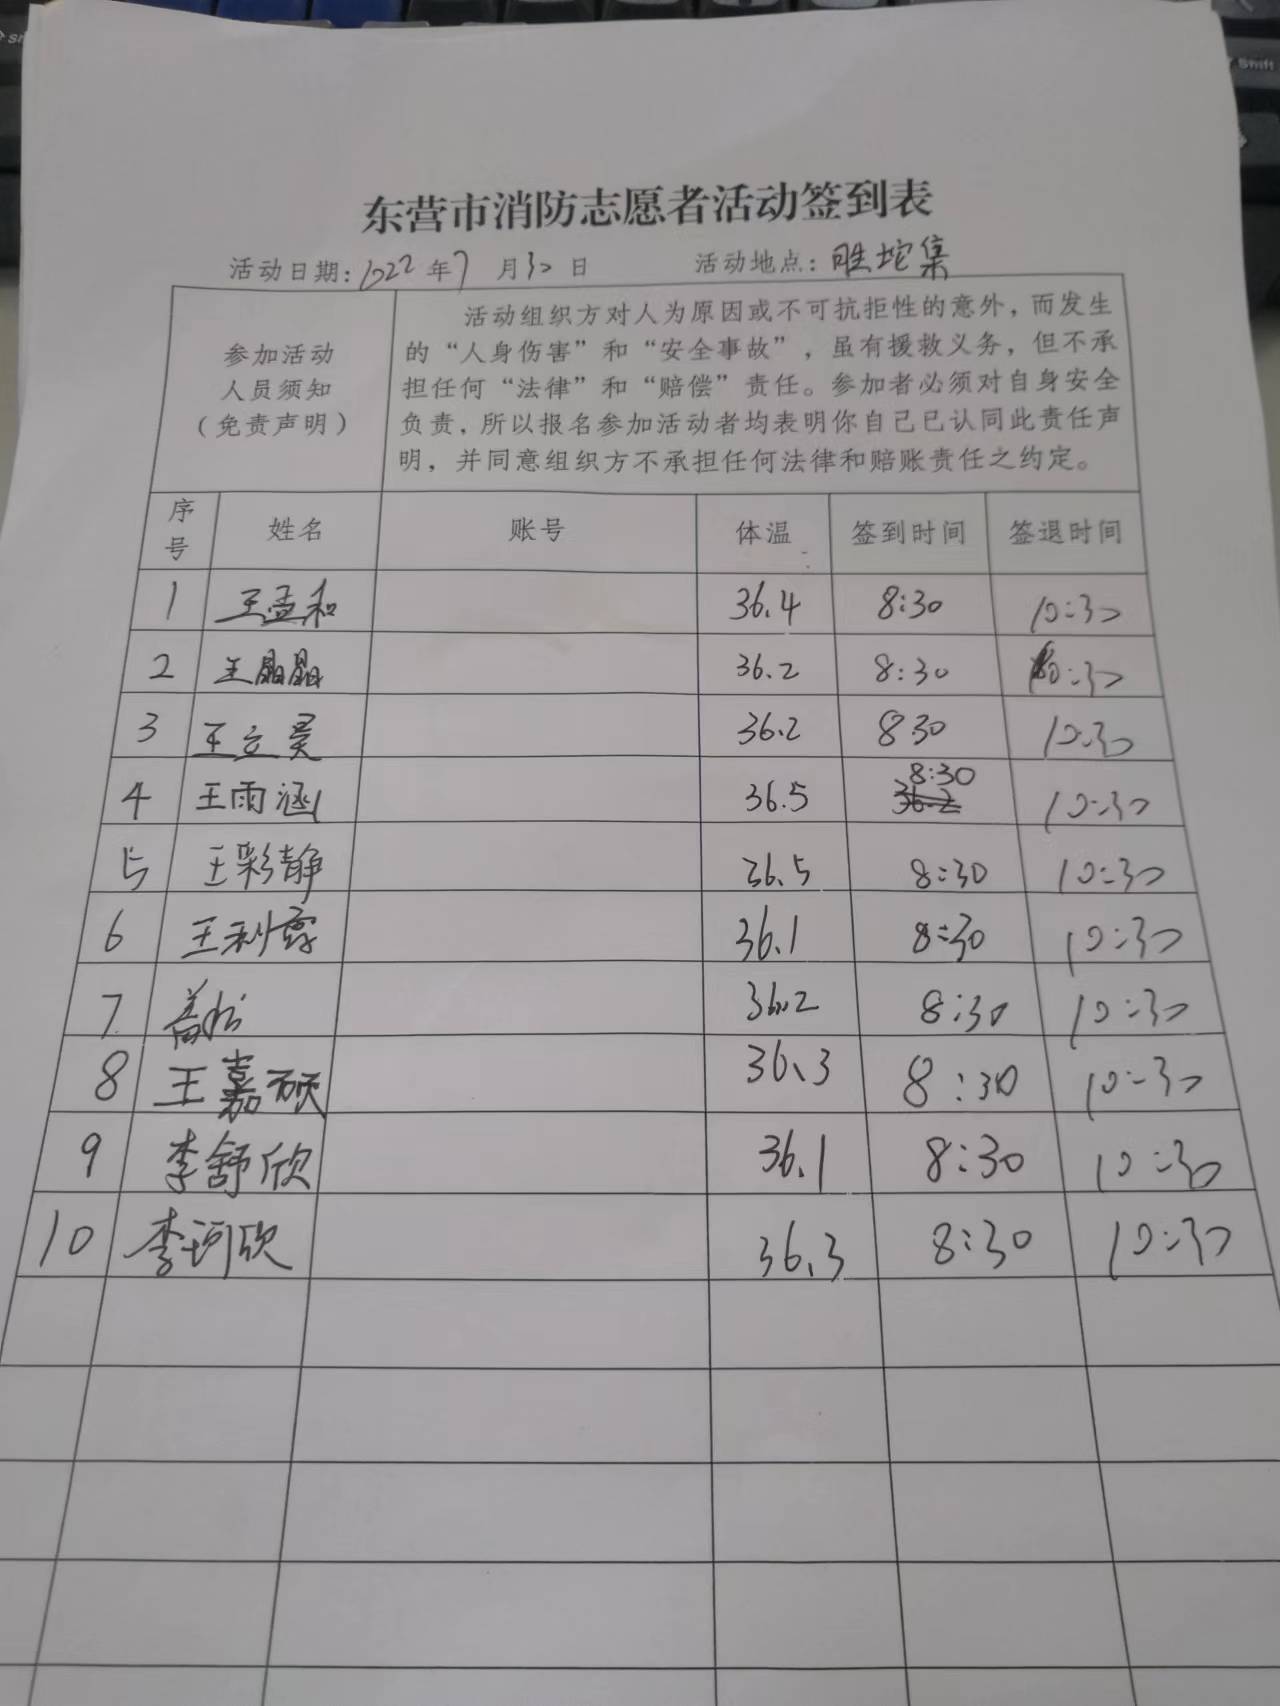 东营市消防志愿者活动签到表
活动日期：2022年7月30日 活动地点：胜坨集
参加活动
人员须知
（免责声明）
活动组织方对人为原因或不可抗拒性的意外，而发生
的“人身伤害”和“安全事故”，虽有援救义务，但不承
担任何“法律”和“赔偿”责任。参加者必须对自身安全
负责，所以报名参加活动者均表明你自己已认同此责任声
明，并同意组织方不承担任何法律和赔账责任之约定。
序号 姓名 账号 体温 签到时间 签退时间
1 王孟和 36.4 8:30 10:30
2 王晶晶 36.2 8:30 10:30
3 王立昊 36.2 830 10:30
4 王雨涵 36.5 8:30 10:30
5 王彩静 36.5 8:30 10:30
6 王利霞 36.1 8:30 10:30
7 36.2 8:30 10:30
8 王嘉硕 36.3 8:30 10:30
9 李舒欣 36.1 8:30 10:30
10 李珂欣 36.3 8:30 10:30
Shift